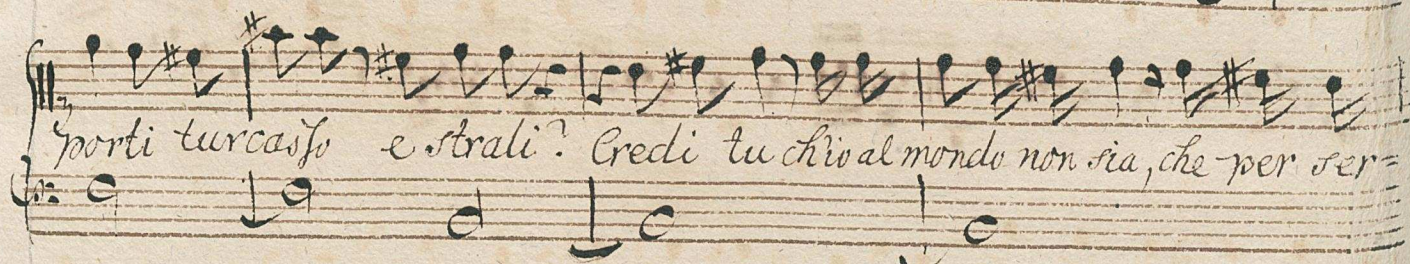 porti turcasso e strali? Credi tu ch'io al mondo non sia, che per ser=